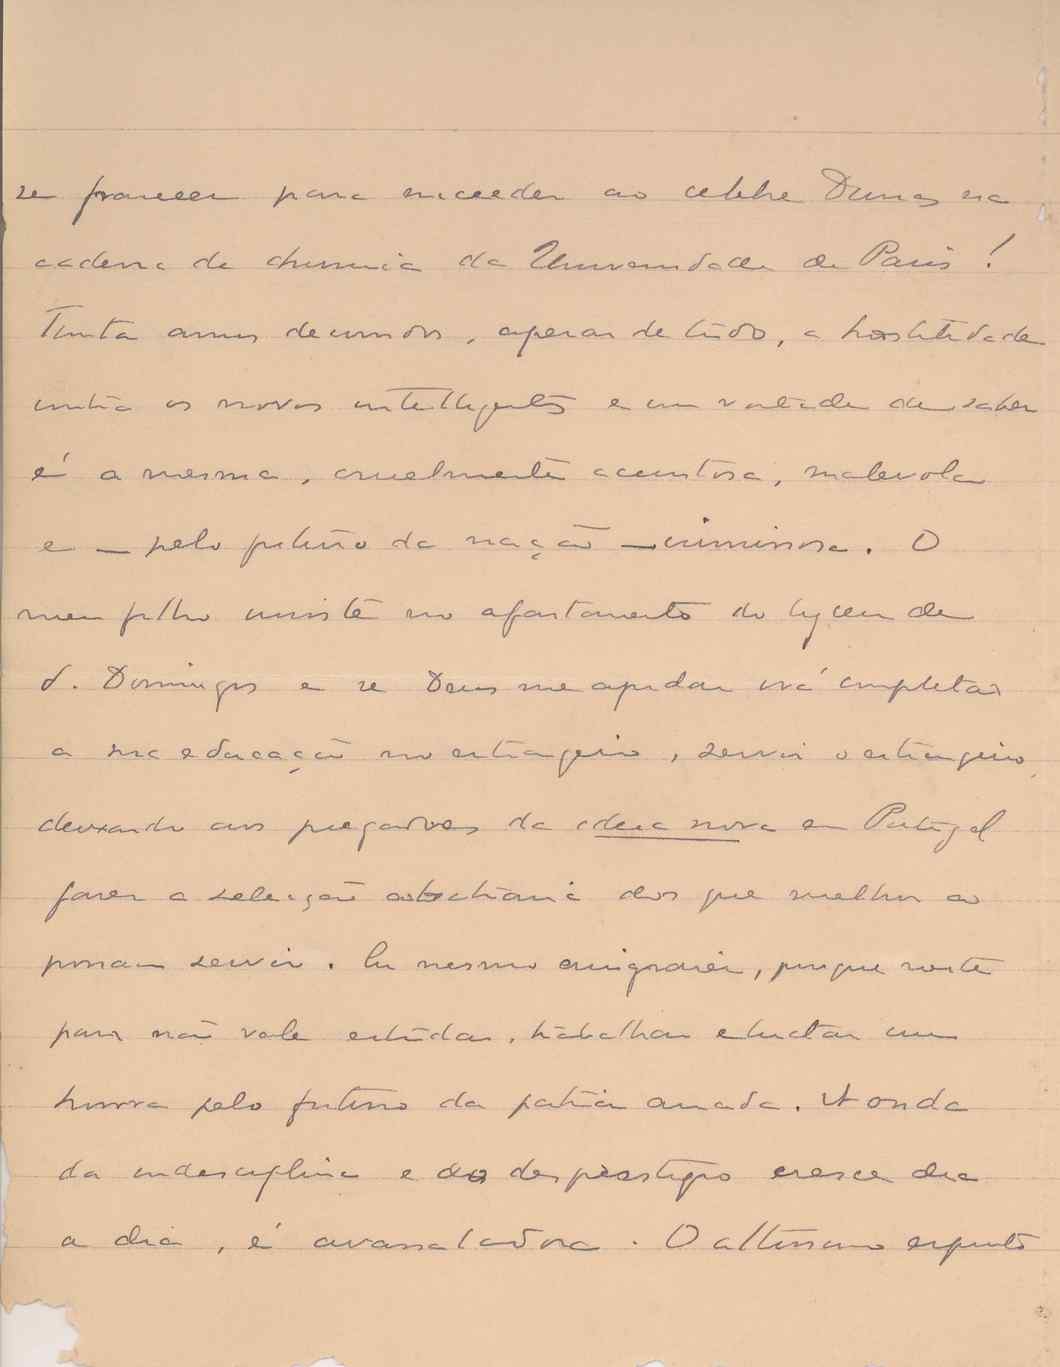 se francez para succeder ao celebre Dumas na
cadeira de chimica da Universidade de Paris!
Trinta annos decorridos, apezar de tudo, a hostilidade
contra os novos intelligentes e com vontade de saber
é a mesma, cruelmente accintosa, malevola
e — pelo futuro da nação — criminosa. O
meu filho insiste no afastamento do lyceu de
S. Domingos e se Deus me ajudar irá completar
a sua educação no extrangeiro, servir o extrangeiro,
deixando aos pregadores da ideia nova em Portugal
fazer a selecção dos que melhor os
possam servir. Eu mesmo emigrarei, porque neste
paiz não vale estudar, trabalhar e luctar com
honra pelo futuro da patria amada. A onda
da indisciplina e do desprestigio cresce dia
a dia, é avassaladora. O altissimo espirito